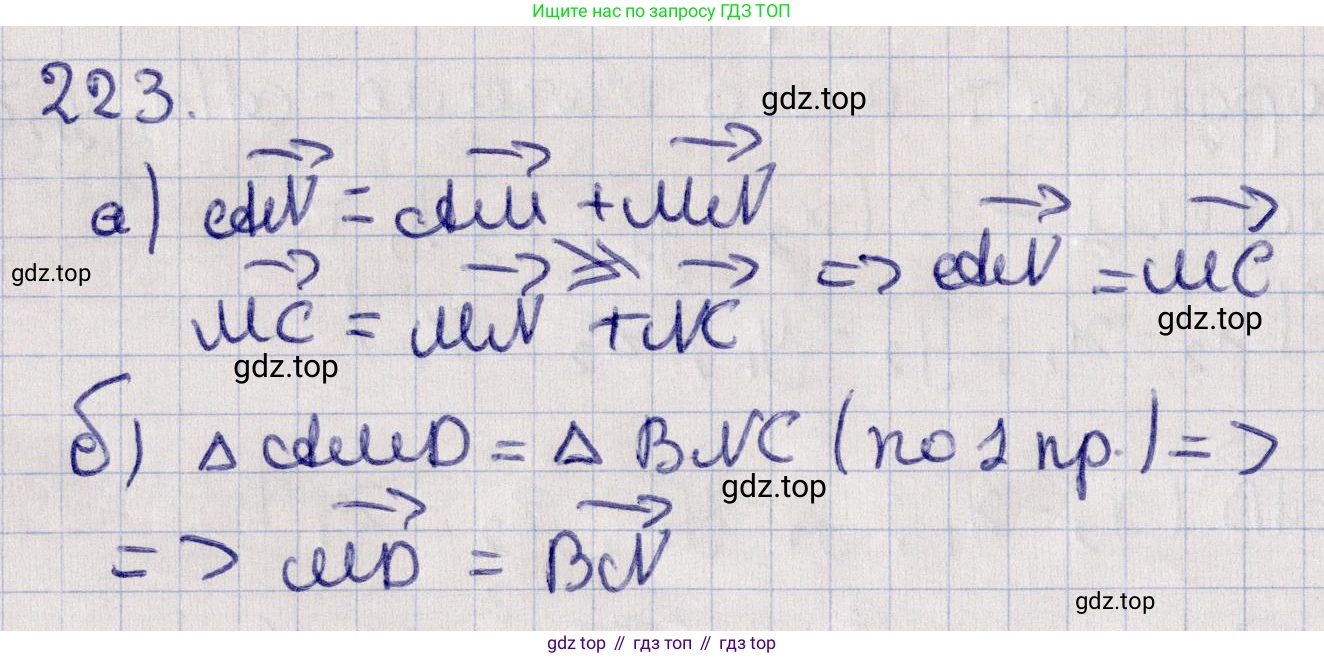 Ищите нас по запросу ГДЗ ТОП
223.
gdz.top
а) AN = AM + MN
gdz.top
MC = MN + NC => AN = MC
gdz.top
gdz.top
б) △ AMD = △ BNC (по 1 пр.) =>
gdz.top
=> MD = BN
gdz.top
gdz.top // гдз топ // гдз top